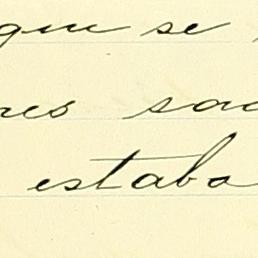 que se
res sa
estaba